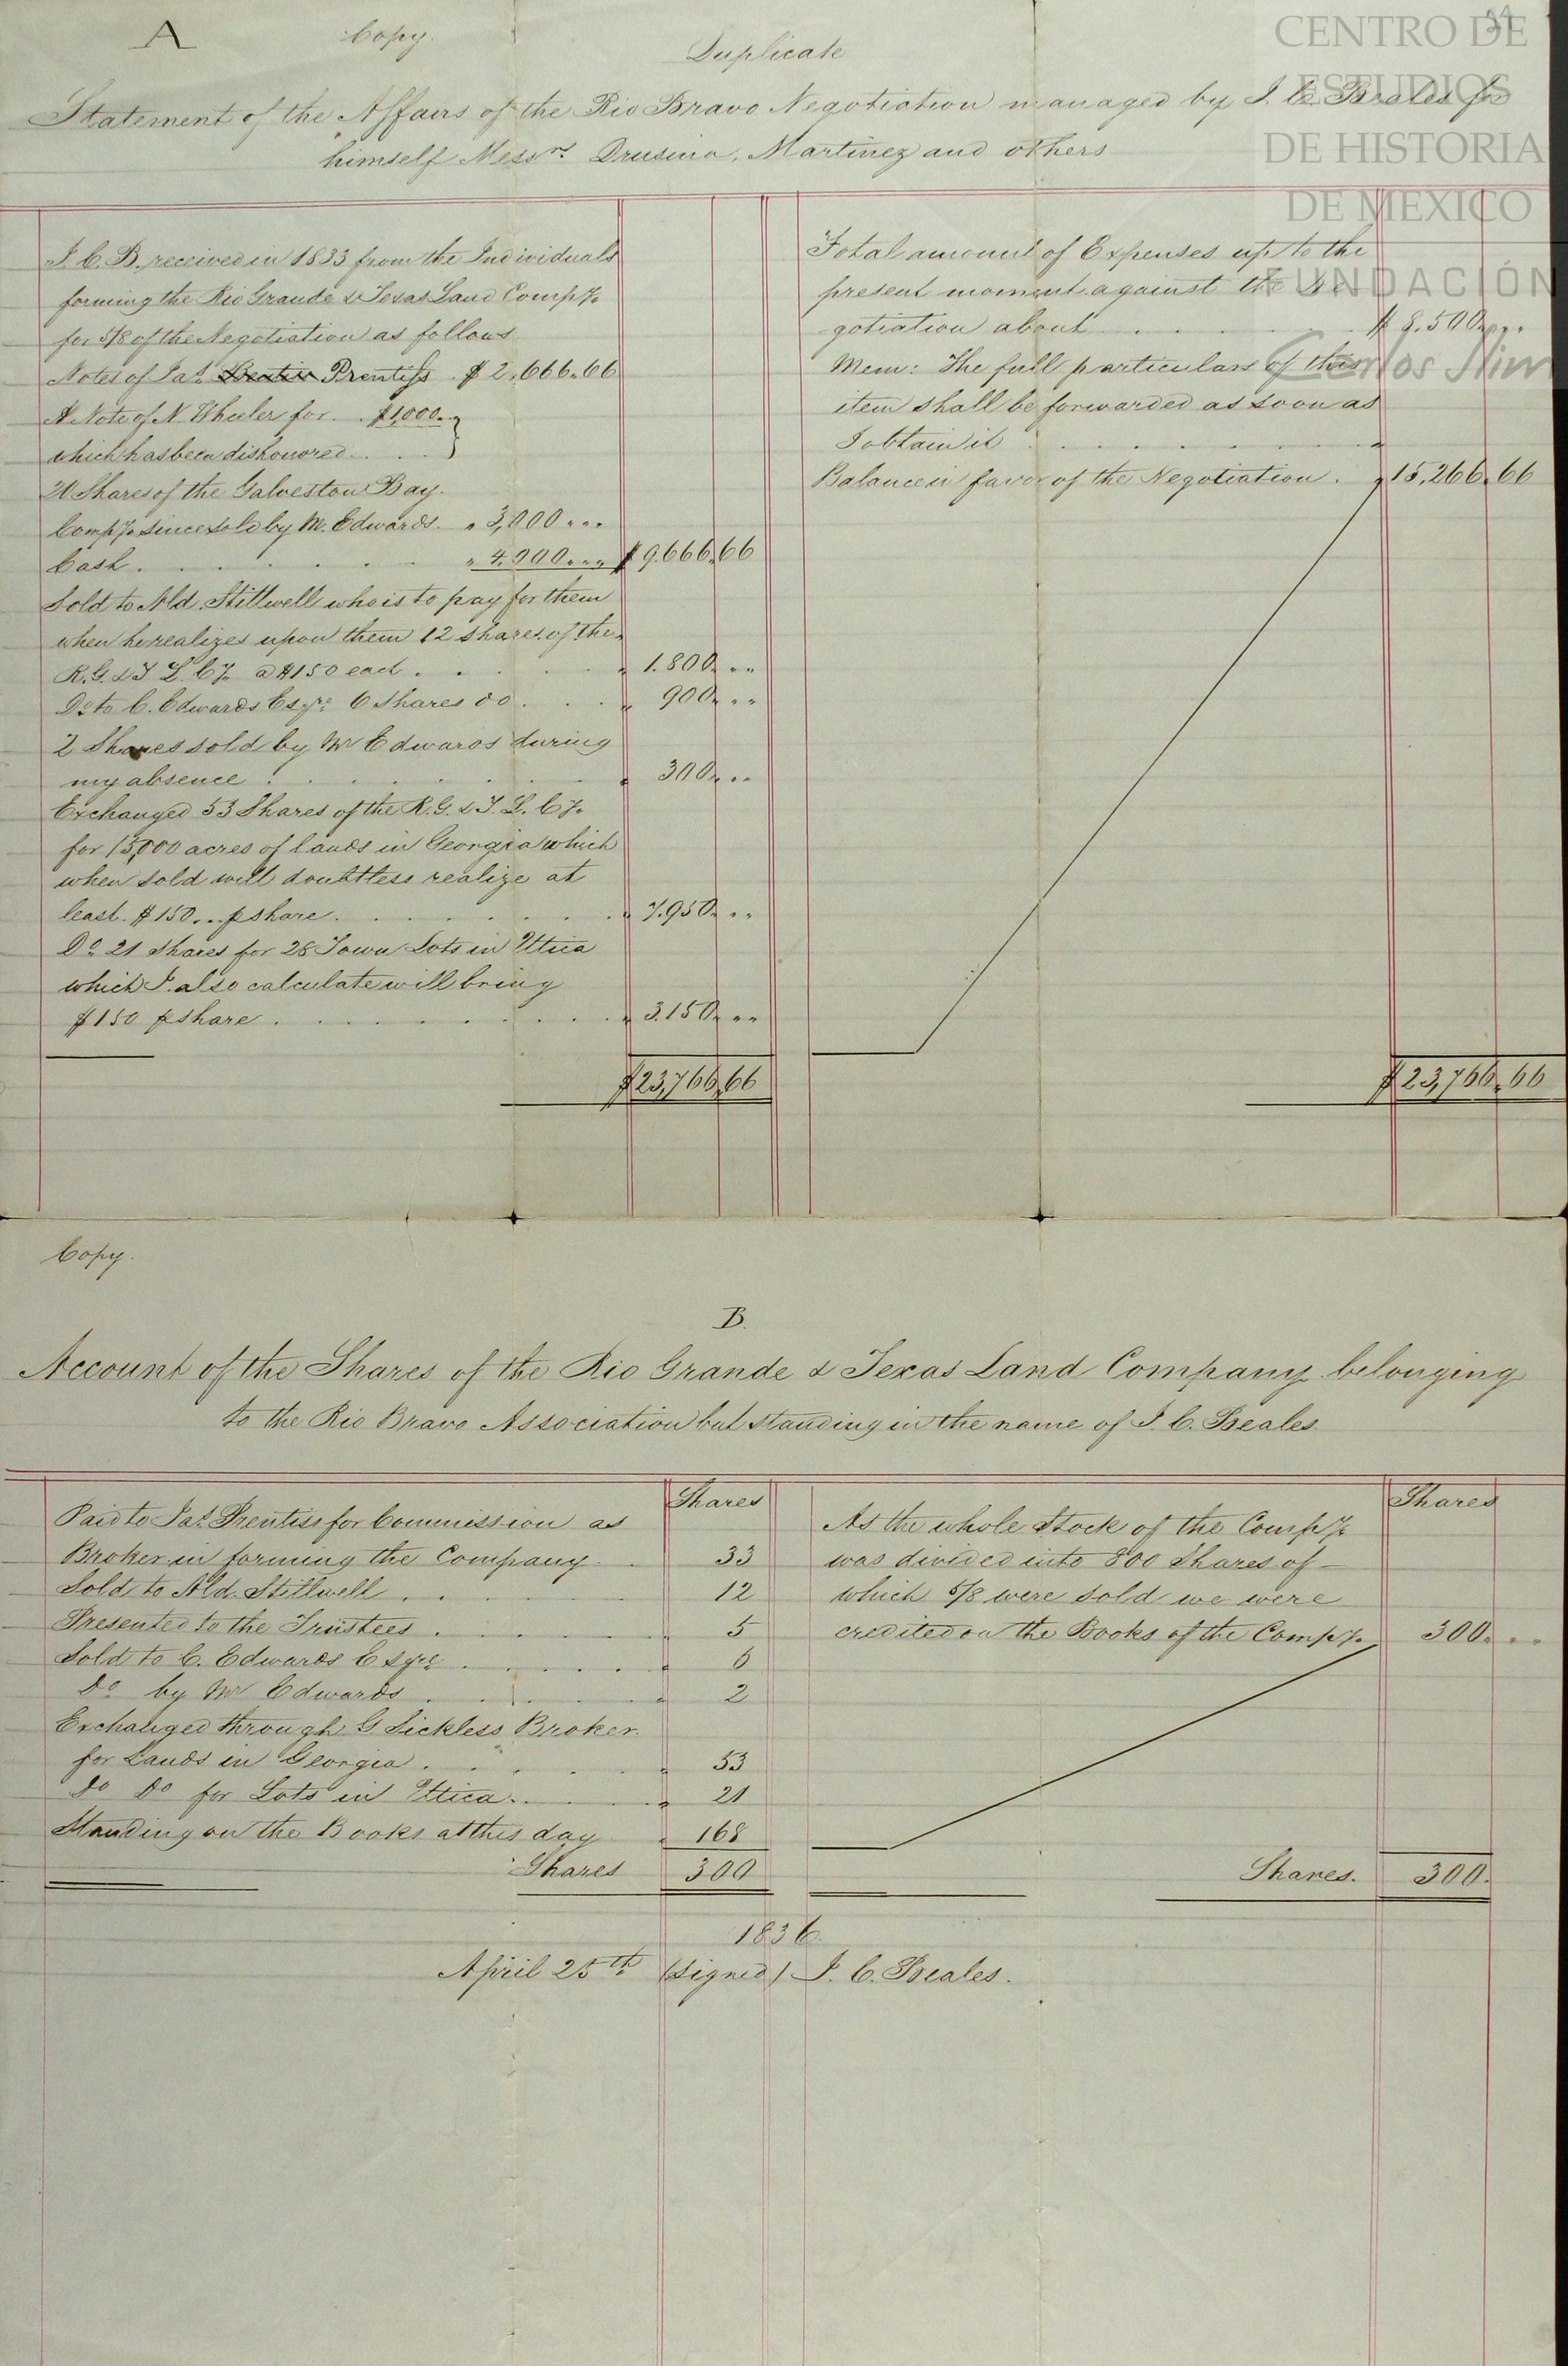 A
Copy.
Duplicate
Statement of the Affairs of the Rio Bravo Negotiation managed by J. C. Beales for
himself Messrs. Drusina, Martinez and others
J. C. B. received in 1833 from the Individuals
forming the Rio Grande & Texas Land Compy.
for 5/8 of the Negotiation as follows
Notes of Jas. Prentiss . $ 2,666.66
A Note of N. Wheeler for . . $1,000.
which has been dishonored . . .
20 Shares of the Galveston Bay.
Compy. since sold by M. Edwards. " 3,000 " "
Cash . . . . . . " 4,000 " " $ 9.666.66
Sold to Ald. Stillwell who is to pay for them
when he realizes upon them 12 shares of the
R. G. & T. L. Cy. @ $150 each . . . " 1.800 " "
Do. to C. Edwards Esqre. 6 Shares do . . . " 900 " "
2 Shares sold by Mr Edwards during
my absence . . . . . " 300 " "
Exchanged 53 Shares of the R. G. & T. L. Cy.
for 15,000 acres of lands in Georgia which
when sold will doubtless realize at
least $150 .. p share . . . . . " 7.950 " "
Do. 21 Shares for 28 Town Lots in Utica
which I also calculate will bring
$150 p share . . . . . . " 3.150 " "
$23,766.66
Total amount of Expenses up to the
present moment against the Ne-
gotiation about . . . . . $ 8.500 " "
Mem: The full particulars of this
item shall be forwarded as soon as
I obtain it . . . . .
Balance in favor of the Negotiation . " 15,266.66
$23,766.66
Copy.
B.
Account of the Shares of the Rio Grande & Texas Land Company belonging
to the Rio Bravo Association but standing in the name of J. C. Beales.
Shares
Paid to Jas. Prentiss for Commission as
Broker in forming the Company . . 33
Sold to Ald. Stillwell . . . . 12
Presented to the Trustees . . . . " 5
Sold to C. Edwards Esqre. . . . . " 6
Do. by Mr Edwards . . . . " 2
Exchanged through G Sickless Broker.
for Lands in Georgia . . . . " 53
do Do for Lots in Utica . . . " 21
Standing on the Books at this day " 168
Shares 300
Shares
As the whole Stock of the Compy.
was divided into 800 Shares of
which 5/8 were sold we were
credited on the Books of the Compy. 300 " "
Shares. 300.
1836.
April 25th (signed) J. C. Beales.
CENTRO DE
ESTUDIOS
DE HISTORIA
DE MEXICO
FUNDACIÓN
Carlos Slim